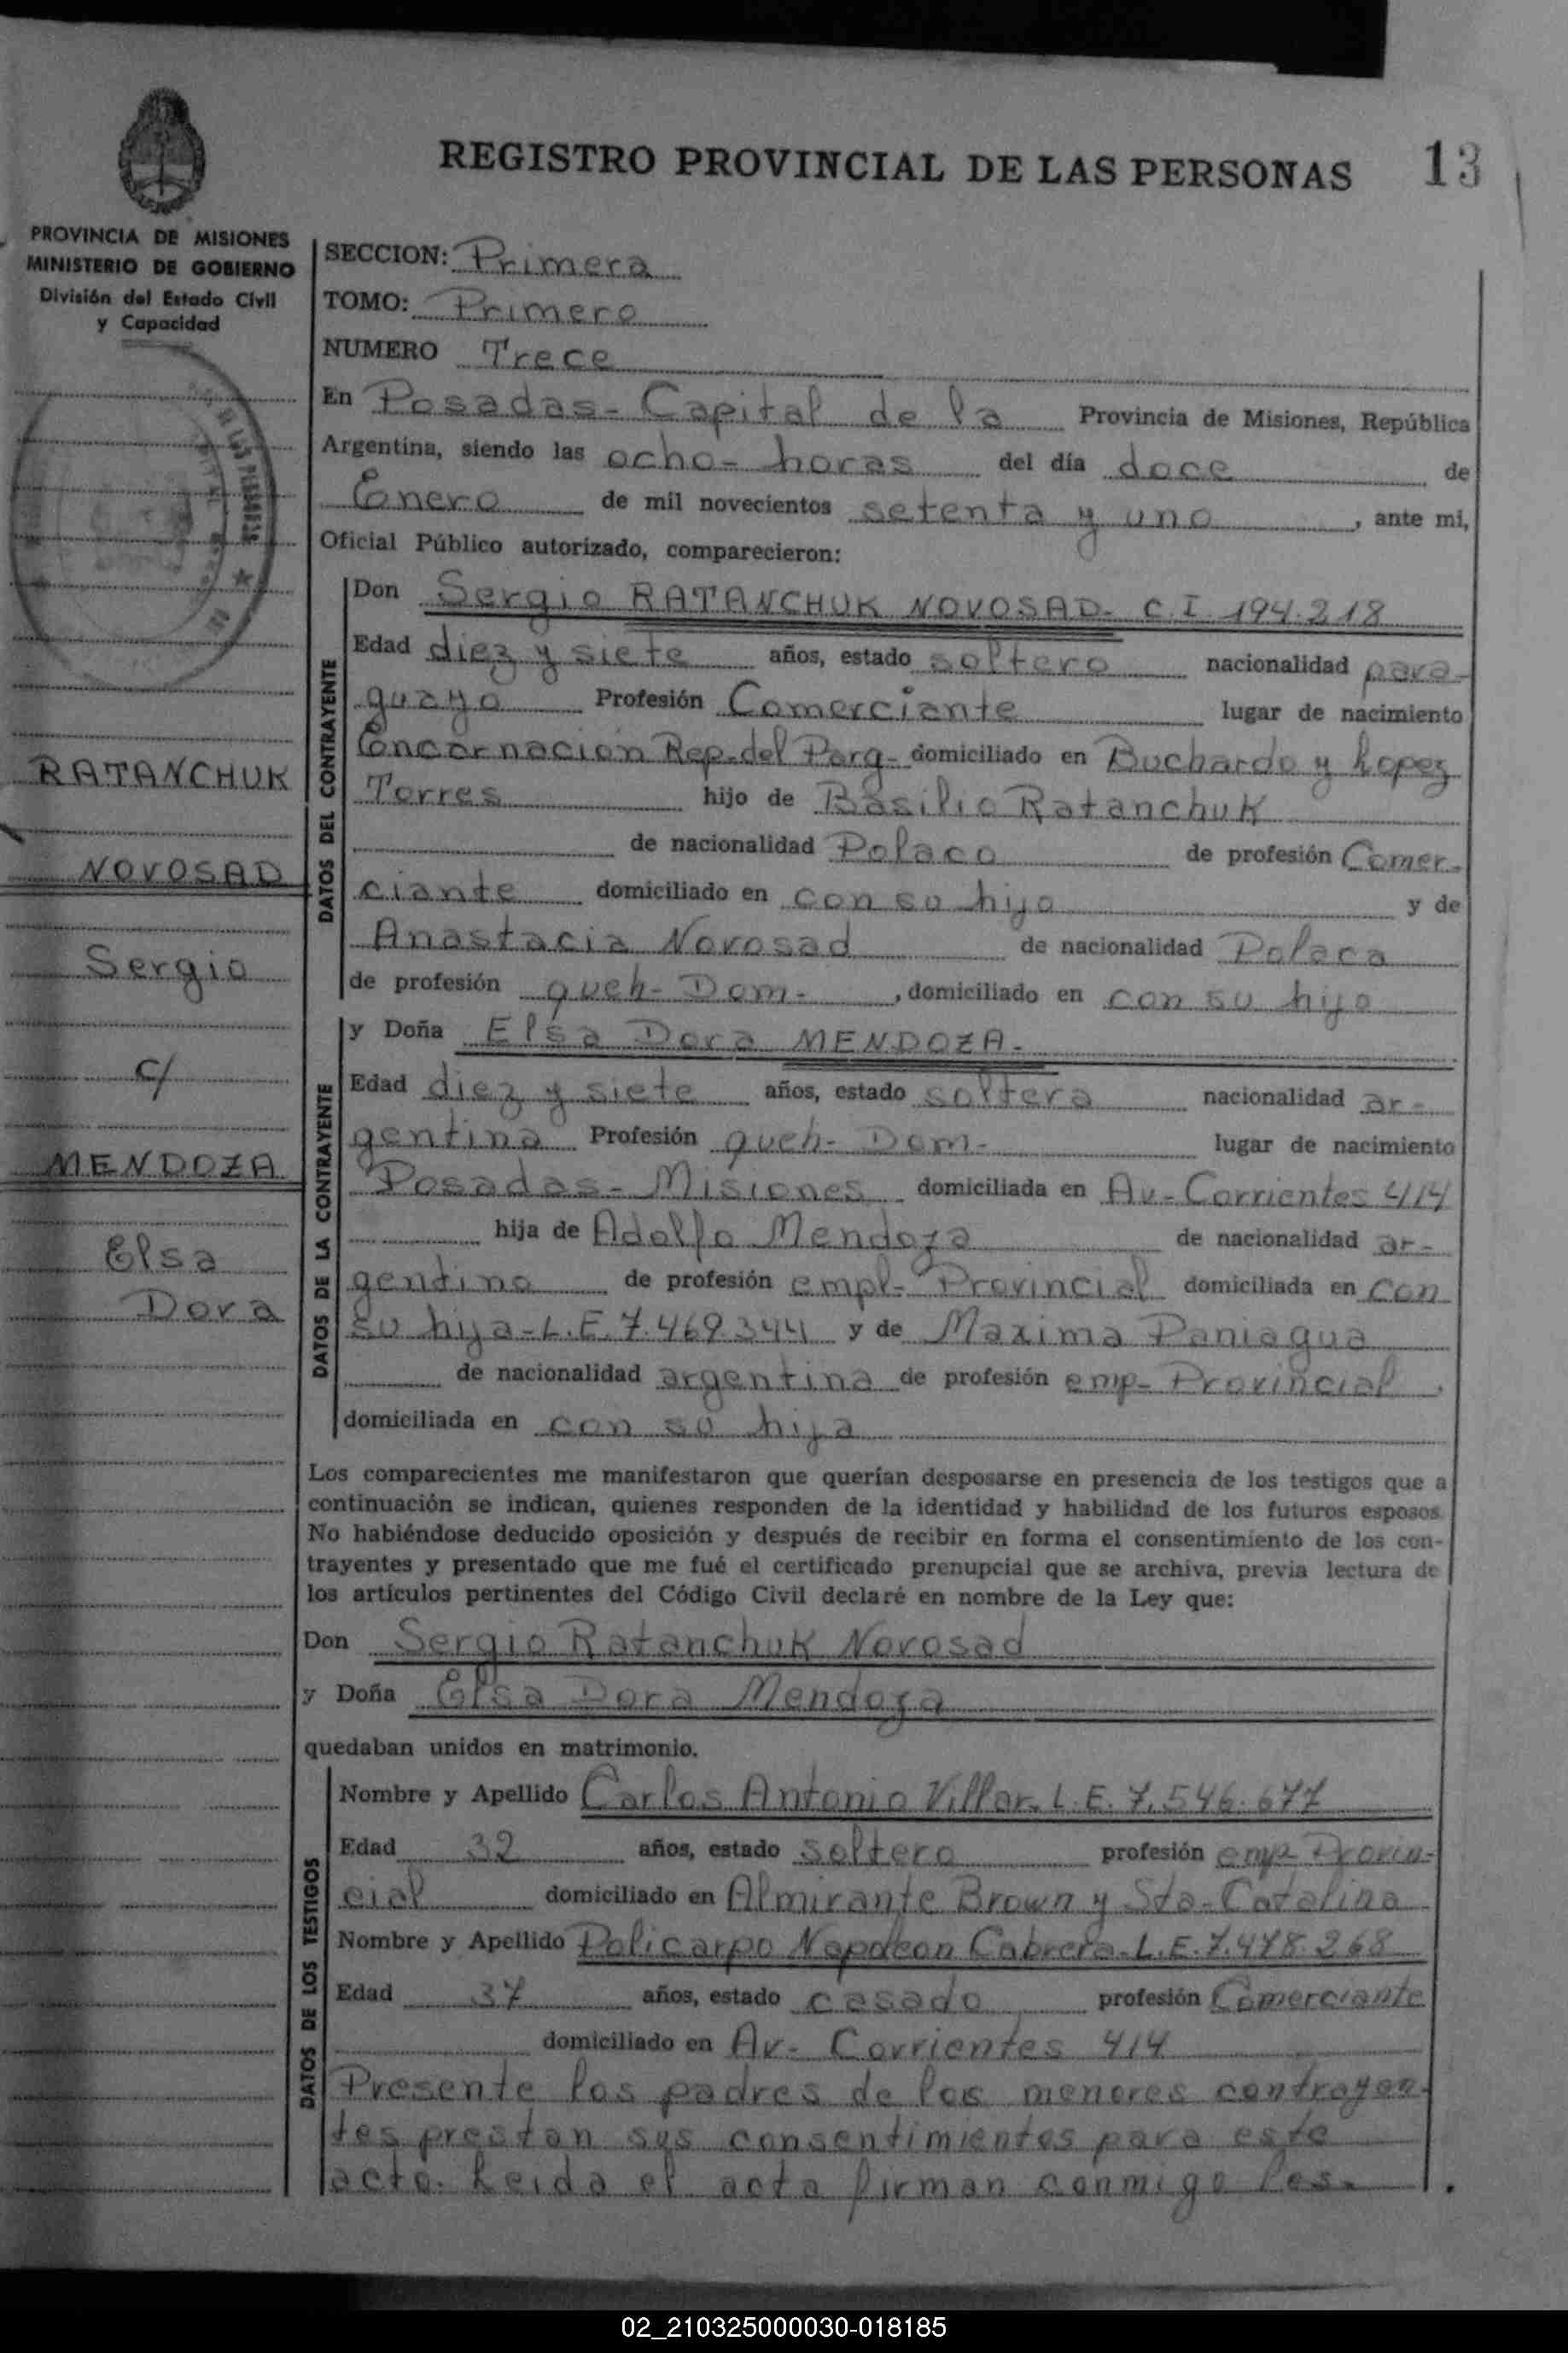 REGISTRO PROVINCIAL DE LAS PERSONAS 13
PROVINCIA DE MISIONES
MINISTERIO DE GOBIERNO
División del Estado Civil
y Capacidad
RATANCHUK
NOVOSAD
Sergio
c/
MENDOZA
Elsa
Dora
SECCION: Primera
TOMO: Primero
NUMERO Trece
En Posadas - Capital de la Provincia de Misiones, República
Argentina, siendo las ocho - horas del día doce de
Enero de mil novecientos setenta y uno, ante mi,
Oficial Público autorizado, comparecieron:
DATOS DEL CONTRAYENTE
Don Sergio RATANCHUK NOVOSAD - C.I. 194.218
Edad diez y siete años, estado soltero nacionalidad para-
guayo Profesión Comerciante lugar de nacimiento
Encarnacion Rep. del Parg - domiciliado en Buchardo y Lopez
Torres hijo de Basilio Ratanchuk
de nacionalidad Polaco de profesión Comer-
ciante domiciliado en con su hijo y de
Anastacia Novosad de nacionalidad Polaca
de profesión queh - Dom -, domiciliado en con su hijo
DATOS DE LA CONTRAYENTE
y Doña Elsa Dora MENDOZA -
Edad diez y siete años, estado soltera nacionalidad ar-
gentina Profesión queh - Dom - lugar de nacimiento
Posadas - Misiones domiciliada en Av - Corrientes 414
hija de Adolfo Mendoza de nacionalidad ar-
gentino de profesión empl - Provincial domiciliada en con
su hija - L.E. 7.469.344 y de Maxima Paniagua
de nacionalidad argentina de profesión emp - Provincial,
domiciliada en con su hija
Los comparecientes me manifestaron que querían desposarse en presencia de los testigos que a
continuación se indican, quienes responden de la identidad y habilidad de los futuros esposos.
No habiéndose deducido oposición y después de recibir en forma el consentimiento de los con-
trayentes y presentado que me fué el certificado prenupcial que se archiva, previa lectura de
los artículos pertinentes del Código Civil declaré en nombre de la Ley que:
Don Sergio Ratanchuk Novosad
y Doña Elsa Dora Mendoza
quedaban unidos en matrimonio.
DATOS DE LOS TESTIGOS
Nombre y Apellido Carlos Antonio Villar - L.E. 7.546.677
Edad 32 años, estado soltero profesión emp - Provin-
cial domiciliado en Almirante Brown y Sta - Catalina
Nombre y Apellido Policarpo Napoleon Cabrera - L.E. 7.478.268
Edad 37 años, estado casado profesión Comerciante
domiciliado en Av - Corrientes 414
Presente los padres de los menores contrayen-
tes prestan sus consentimientos para este
acto. Leida el acta firman conmigo los -
02_210325000030-018185